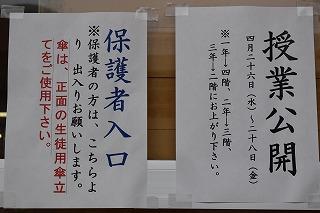 授業公開
四月二十六日（水）～二十八日（金）
※一年→四階、二年→三階、
三年→二階にお上がり下さい。
保護者入口
※保護者の方は、こちらよ
り 出入りお願いします。
傘は、正面の生徒用傘立
てをご使用下さい。